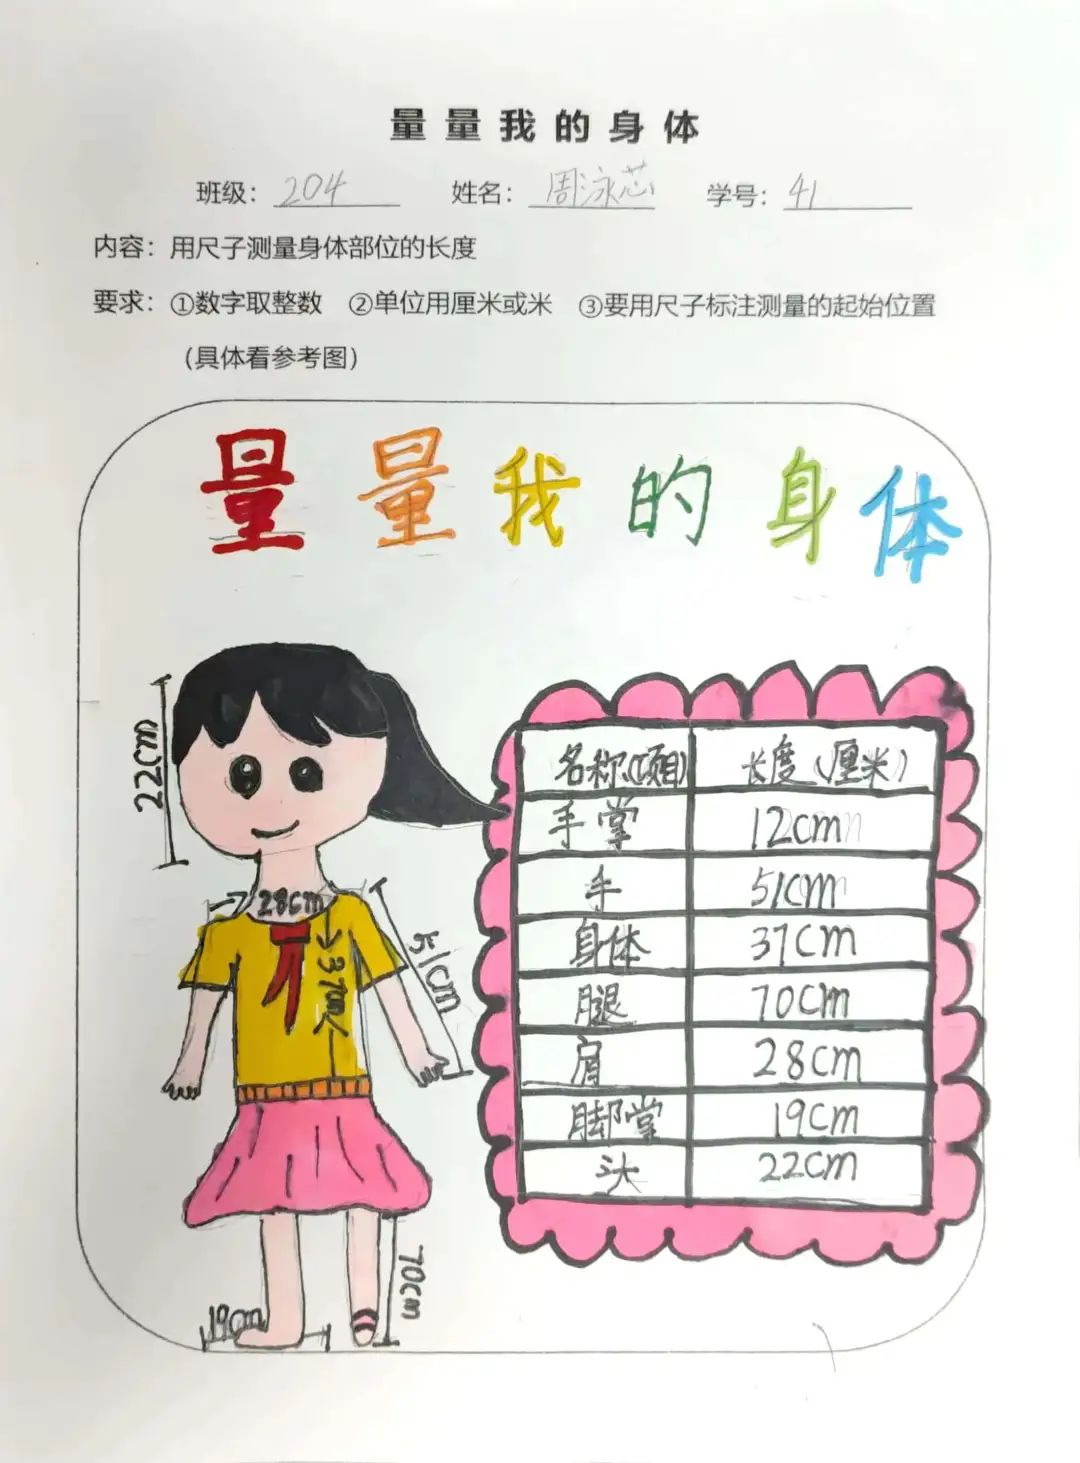 量量我的身体
班级：204 姓名：周泳芯 学号：41
内容：用尺子测量身体部位的长度
要求：①数字取整数 ②单位用厘米或米 ③要用尺子标注测量的起始位置
（具体看参考图）
量量我的身体
22cm
28cm
51cm
37cm
19cm
70cm
名称(项目) 长度(厘米)
手掌 12cm
手 51cm
身体 37cm
腿 70cm
肩 28cm
脚掌 19cm
头 22cm